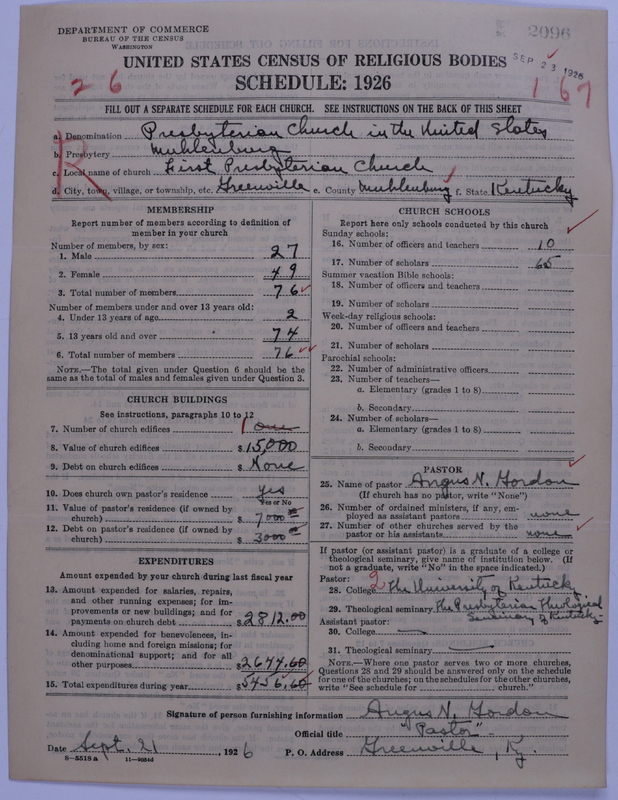 DEPARTMENT OF COMMERCE
BUREAU OF THE CENSUS
WASHINGTON
2096
UNITED STATES CENSUS OF RELIGIOUS BODIES
SEP 23 1926
SCHEDULE: 1926
26
167
FILL OUT A SEPARATE SCHEDULE FOR EACH CHURCH. SEE INSTRUCTIONS ON THE BACK OF THIS SHEET
R
a. Denomination Presbyterian Church in the United States
b. Presbytery Muhlenburg
c. Local name of church First Presbyterian Church
d. City, town, village, or township, etc. Greenville e. County Muhlenburg f. State Kentucky
MEMBERSHIP
Report number of members according to definition of
member in your church
Number of members, by sex:
1. Male 27
2. Female 49
3. Total number of members 76
Number of members under and over 13 years old:
4. Under 13 years of age 2
5. 13 years old and over 74
6. Total number of members 76
NOTE.—The total given under Question 6 should be the
same as the total of males and females given under Question 3.
CHURCH BUILDINGS
See instructions, paragraphs 10 to 12
7. Number of church edifices 1 one
8. Value of church edifices $15,000
9. Debt on church edifices $ None
10. Does church own pastor's residence yes
Yes or No
11. Value of pastor's residence (if owned by
church) $7000 00
12. Debt on pastor's residence (if owned by
church) $3000 00
EXPENDITURES
Amount expended by your church during last fiscal year
13. Amount expended for salaries, repairs,
and other running expenses; for im-
provements or new buildings; and for
payments on church debt $2812.00
14. Amount expended for benevolences, in-
cluding home and foreign missions; for
denominational support; and for all
other purposes $2644.60
15. Total expenditures during year $5456.60
CHURCH SCHOOLS
Report here only schools conducted by this church
Sunday schools:
16. Number of officers and teachers 10
17. Number of scholars 65
Summer vacation Bible schools:
18. Number of officers and teachers
19. Number of scholars
Week-day religious schools:
20. Number of officers and teachers
21. Number of scholars
Parochial schools:
22. Number of administrative officers
23. Number of teachers—
a. Elementary (grades 1 to 8)
b. Secondary
24. Number of scholars—
a. Elementary (grades 1 to 8)
b. Secondary
PASTOR
25. Name of pastor Angus N. Gordon
(If church has no pastor, write "None")
26. Number of ordained ministers, if any, em-
ployed as assistant pastors none
27. Number of other churches served by the
pastor or his assistants none
If pastor (or assistant pastor) is a graduate of a college or
theological seminary, give name of institution below. (If
not a graduate, write "No" in the space indicated.)
Pastor:
28. College 2 The University of Kentucky
29. Theological seminary The Presbyterian Theological
Seminary of Kentucky
Assistant pastor:
30. College
31. Theological seminary
NOTE.—Where one pastor serves two or more churches,
Questions 28 and 29 should be answered only on the schedule
for one of the churches; on the schedules for the other churches,
write "See schedule for church."
Signature of person furnishing information Angus N. Gordon
Official title "Pastor"
Date Sept. 21, 1926 P. O. Address Greenville, Ky.
8-5518 a